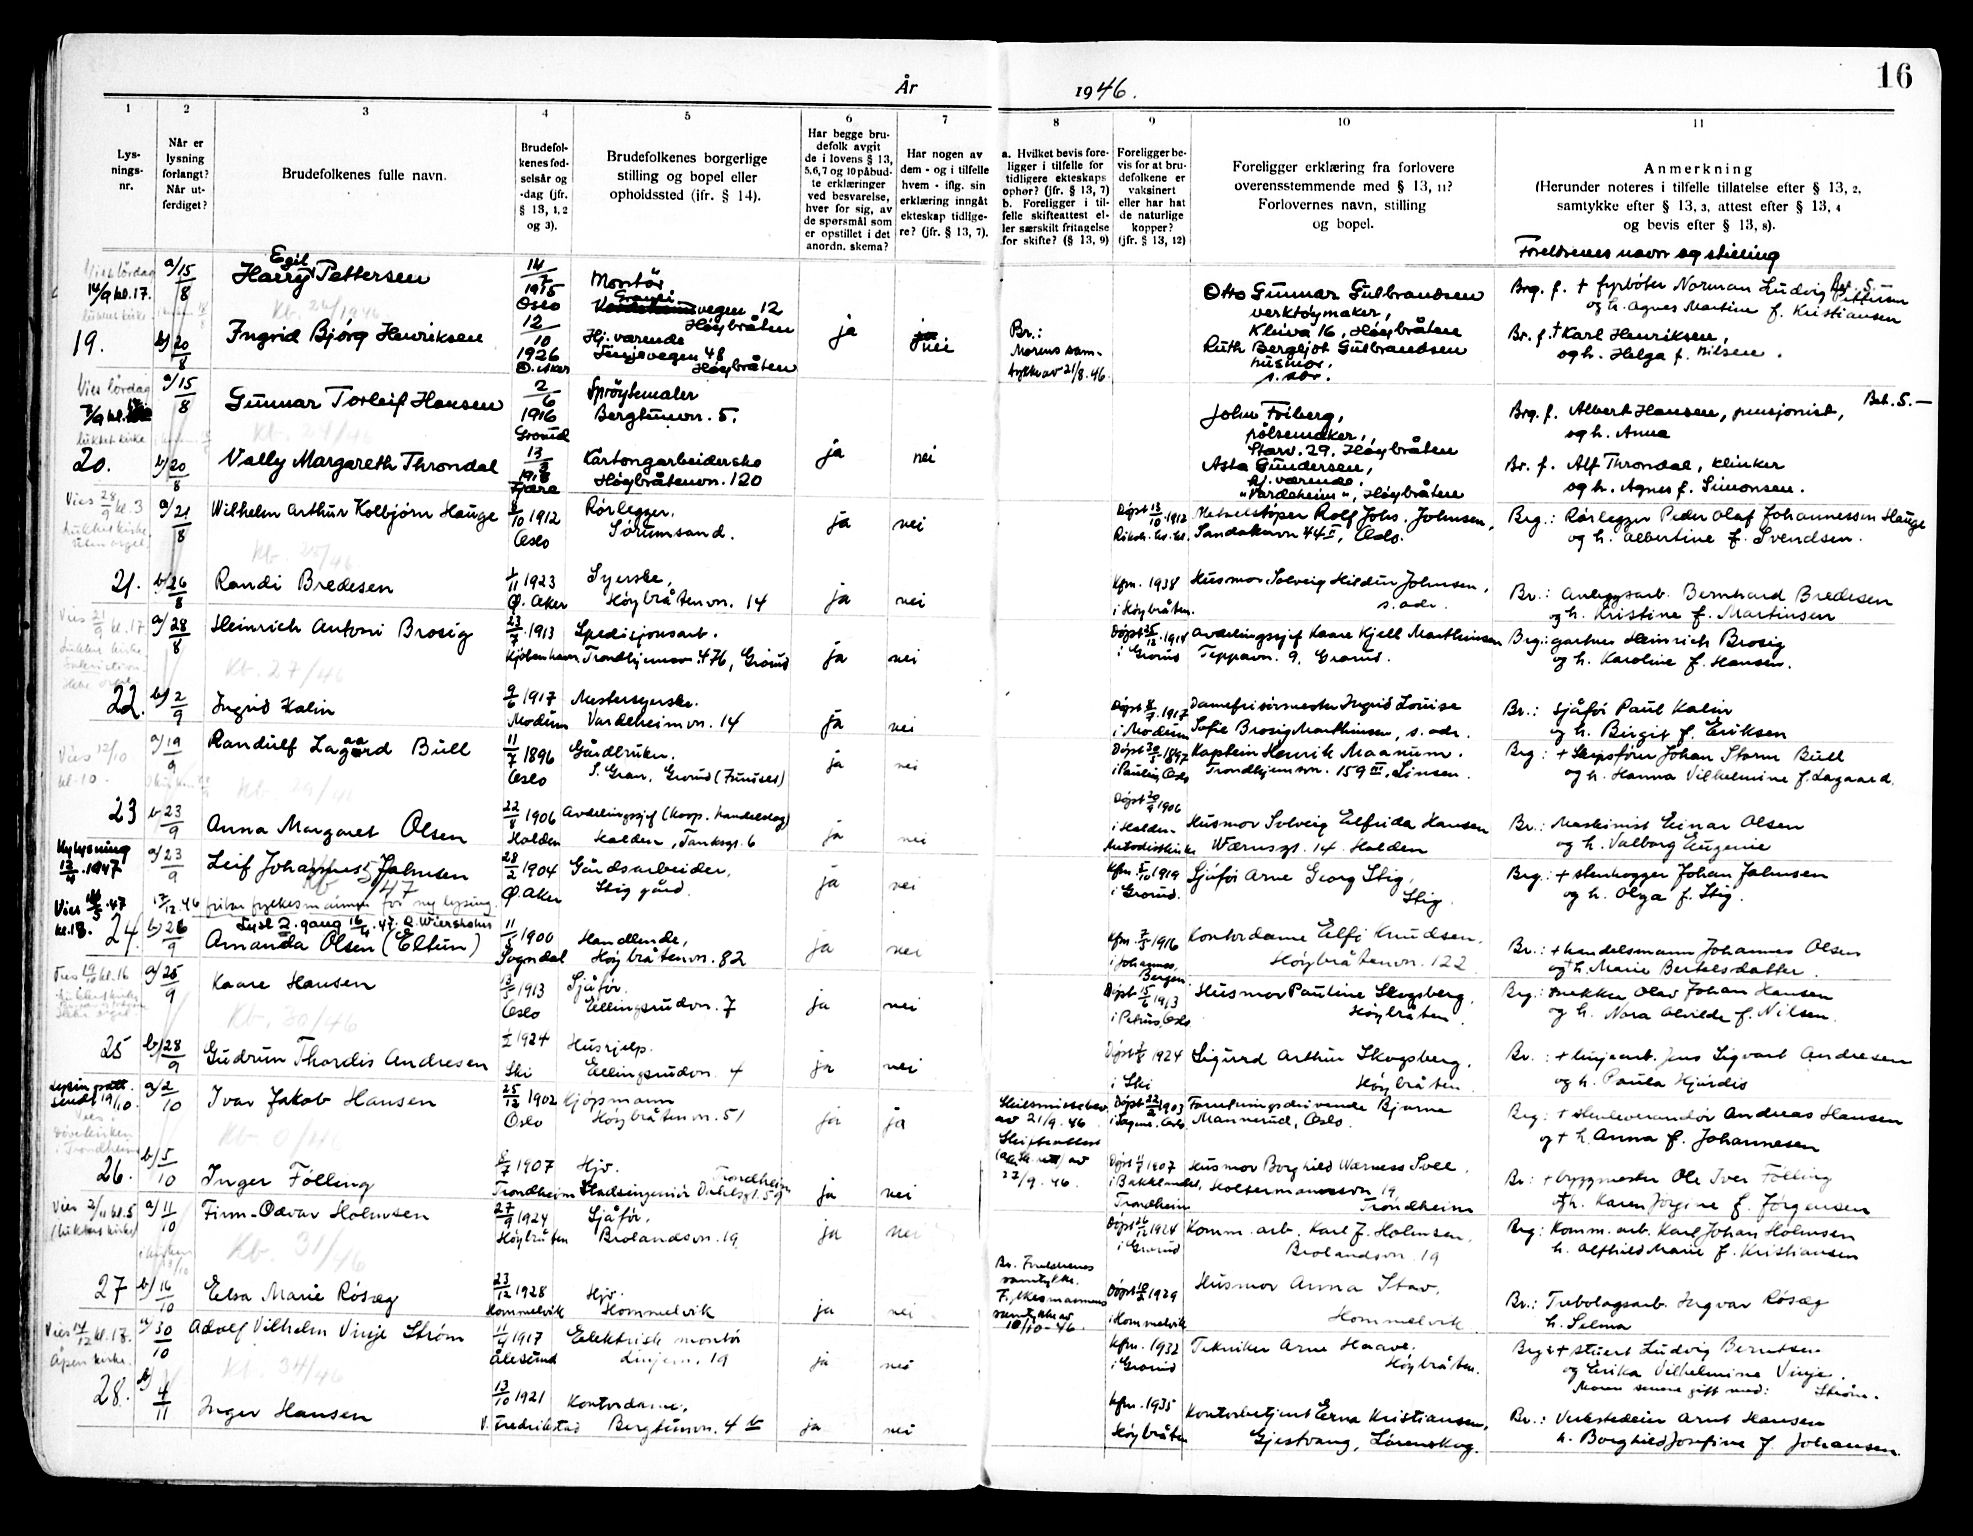 16
År 1946.
1 2 3 4 5 6 7 8 9 10 11
Lys-
nings-
nr.
Når er
lysning
forlangt?
Når ut-
ferdiget?
Brudefolkenes fulle navn.
Brudefol-
kenes fød-
selsår og
-dag (jfr.
§ 13, 1, 2
og 3).
Brudefolkenes borgerlige
stilling og bopel eller
opholdssted (ifr. § 14).
Har begge bru-
defolk avgit
de i lovens § 13,
5, 6, 7 og 10 påbud-
te erklæringer
ved besvarelse,
hver for sig, av
de spørsmål som
er opstillet i det
anordn. skema?
Har nogen av
dem - og i tilfelle
hvem - iflg. sin
erklæring inngått
ekteskap tidlige-
re? (jfr. § 13, 7).
a. Hvilket bevis fore-
ligger i tilfelle for
tidligere ekteskaps
ophør? (jfr. § 13, 7)
b. Foreligger i til-
felle skifteattest el-
ler særskilt fritagelse
for skifte? (§ 13, 9)
Foreligger be-
vis for at bru-
defolkene er
vaksinert
eller har hat
de naturlige
kopper?
(jfr. § 13, 12)
Foreligger erklæring fra forlovere
overensstemmende med § 13, 11?
Forlovernes navn, stilling
og bopel.
Anmerkning
(Herunder noteres i tilfelle tillatelse efter § 13, 2,
samtykke efter § 13, 3, attest efter § 13, 4
og bevis efter § 13, 8).
Foreldrenes navn og stilling
Vies lördag
14/9 kl. 17.
lukket kirke
19.
a/ 15/8
Egil
Harry Pettersen
14/7 1915
Oslo
Montör
Granli
vegen 12
Høybråten
Otto Gunnar Gulbrandsen
verktøymaker,
Kleiva 16, Høybråten
Brg. f. + fyrböter Norman Ludvig Pettersen
og h. Agnes Martine f. Kristiansen
Bet. 5.-
b/ 20/8
Ingrid Bjørg Henriksen
12/10 1926
Ø. Aker
Hj. værende
Linjevegen 48
Høybråten
ja
nei
Br.:
Morens sam-
tykke av 21/8. 46.
Ruth Bergljot Gulbrandsen
husmor.
s. adr.
Br. f. + Karl Henriksen,
og h. Helga f. Nilsen.
Vies lördag
lukket kirke
20.
a/ 15/8
Gunnar Torleif Hansen
2/6 1916
Grorud
Sprøytemaler
Bergtunvn. 5.
John Friberg,
pölsemaker,
Starv. 29, Høybråten
Brg. f. Albert Hansen, pensjonist,
og h. Anna
Bet. 5.-
b/ 20/8
Vally Margareth Throndal
13/3 1918
Fjære
Kartongarbeiderske
Høybråtenvn. 120
ja
nei
Asta Gundersen,
hj. værende.
"Vardeheim", Høybråten
Br. f. Alf Throndal, klinker
og h. Agnes f. Simonsen.
Vies 28/9 kl. 3
Lukket kirke
uten orgel
21.
a/ 21/8
Wilhelm Arthur Kolbjørn Hauge
8/10 1912
Oslo
Rørlegger.
Sørumsand.
ja
nei
Døpt 13/10. 1912
Metalstøper Rolf Johs. Johnsen,
Sandakervn 44 II, Oslo.
Brg.: Rørlegger Peder Olaf Johannessen Hauge
og h. Albertine f. Svendsen.
b/ 26/8
Randi Bredesen
1/11 1923
Ø. Aker
Syerske,
Høybråtenvn. 14
ja
nei
Kfm. 1938
i Høybråten.
Husmor Solveig Hildur Johnsen,
s. adr.
Br.: Anleggsarb. Bernhard Bredesen
og h. Kristine f. Martinsen
Vies 21/9 kl. 17
Lukket kirke
22.
a/ 28/8
Heinrich Antoni Brosig
23/7 1913
Kjøbenhavn
Spedisjonsarb.
Trondhjemsvn. 476, Grorud
ja
nei
Døpt 25/12. 1914
i Grorud
Avdelingssjef Kaare Kjell Marthinsen
Teppavn. 9, Grorud.
Brg: gartner Heinrich Brosig
og h. Karoline f. Hansen.
b/ 2/9
Ingrid Kalin
9/6 1917
Modum
Mestersyerske.
Vardeheimvn. 14
ja
nei
Døpt 8/7. 1917
i Modum
Damefrisørmester Ingrid Louise
Sofie Brosig Marthinsen, s. adr.
Br.: sjåfør Paul Kalin
og h. Birgit f. Eriksen
Vies 12/10
kl. 10.
23
a/ 19/9
Randulf Lagaard Bull
11/7 1896
Oslo
Gårdbruker.
S. Gran, Grorud (Furuset)
ja
nei
Døpt 30/5. 1897
i Paulus, Oslo
Kaptein Henrik Maanum.
Trondhjemsvn. 159 III, Sinsen.
Brg: + Skipsfører Johan Storm Bull
og h. Hanna Vilhelmine f. Lagaard.
b/ 23/9
Anna Margaret Olsen
22/8 1906
Halden
Avdelingssjef (Koop. handelslag)
Halden, Tanksgt. 6
ja
nei
Døpt 20/9 1906
i Halden.
Metodistkirke
Husmor Solveig Elfrida Hansen
Wærnsgt. 14. Halden
Br.: Maskinist Einar Olsen
og h. Valborg Eugenie
Ny lysning
12/4. 1947
Vies 10/5. 47
kl. 13.
24.
a/ 23/9
Leif Johannes Johnsen
Kb 5/47
28/2 1904
Ø. Aker
Gårdsarbeider,
Stig gård.
ja
nei
Kfm. 5/10 1919
i Grorud.
Sjåfør Arne Georg Stig,
Stig.
Brg: + stenhogger Johan Johnsen
og h. Olga f. Stig.
17/12. 46 fritar fylkesmannen for ny lysing.
Lyst 2. gang 16/4. 47. R. Wiersholm
b/ 26/9
Amanda Olsen (Eltun)
11/5 1900
Sogndal
Handlende,
Høybråtenvn. 82
ja
nei
Kfm. 7/5 1916
i Johannes,
Bergen
Kontordame Elfi Knudsen.
Høybråtenvn. 122
Br.: + handelsmann Johannes Olsen
og + h. Marie Bertelsdatter.
Vies 19/10 kl. 16
25
a/ 25/9
Kaare Hansen
Kb. 30/46
13/5 1913
Oslo
Sjåfør.
Ellingsrudvn. 7
ja
nei
Døpt 15/6 1913
i Petrus, Oslo
Husmor Pauline Skogsberg,
Høybråten.
Brg: snekker Olav Johan Hansen
og h. Nora Alvilde f. Nilsen.
b/ 28/9
Gudrun Thordis Andresen
1924
Ski
Hushjelp.
Ellingsrudvn. 4
ja
nei
Døpt 1924
i Ski
Sigurd Arthur Skogsberg,
Høybråten.
Br.: + linjearb. Jens Sigvart Andresen
og h. Paula Hjørdis
Lysningsatt.
sendt 19/10.
Vies
Døvekirken
i Trondheim
26.
a/ 2/10
Ivar Jakob Hansen
Kb 0/46
25/12 1902
Oslo
Kjøpmann
Høybråtenvn. 51
ja
ja
Skilsmissebev.
av 21/9. 46.
Skifteattest
av
22/9. 46.
Døpt 22/2 1903
i Sagene, Oslo
Forretningsdrivende Bjarne
Mannerud, Oslo.
Brg: + Stenleverandør Andreas Hansen
og + h. Anna f. Johannesen
b/ 5/10
Inger Fölling
8/7 1907
Trondheim
Hjv.
Trondheim
Stadsingeniør Dahlsgt. 59
ja
nei
Døpt 1907
i Bakklandet,
Trondheim
Husmor Borghild Wærness Svee.
Holtermannsvn. 19,
Trondheim
Br: + byggmester Ole Iver Fölling
og h. Karen Jørgine f. Jørgensen
Vies 2/11 kl. 5
(lukket kirke)
27
a/ 11/10
Finn-Odvar Holmsen
Kb. 31/46
27/9 1924
Høybråten
Sjåfør.
Brolandsvn. 19
ja
nei
Døpt 26/12 1924
i Grorud
Komm. arb. Karl J. Holmsen.
Brolandsvn. 19
Brg: Komm. arb. Karl Johan Holmsen
h. Alfhild Marie f. Kristiansen
b/ 16/10
Elsa Marie Røsæg
23/12 1928
Hommelvik
Hjv.
Hommelvik
ja
nei
Br. Foreldrenes
samtykke.
Fylkesmannens
samtykke av
10/10-46.
Døpt 10/2 1929
i Hommelvik
Husmor Anna Stav,
Hommelvik
Br.: Trebolagsarb. Ingvar Røsæg
h. Selma
Vies 14/12 kl. 17.
Åpen kirke.
28.
a/ 30/10
Adolf Vilhelm Vinje Strøm
Kb. 34/46
11/4 1917
Ålesund
Elektrisk montør
Linjevn. 19
ja
nei
Kfm. 1932
i Grorud
Tekniker Arne Haave,
Høybråten.
Brg: + stuert Ludvig Berntsen
og Erika Vilhelmine Vinje.
Moren senere gift med: Strøm.
b/ 4/11
Inger Hansen
13/10 1921
V. Fredrikstad
Kontordame,
Bergtunvn. 4 b
ja
nei
Kfm. 1935
Høybråten
Kontorbetjent Erna Kristiansen,
Gjestvang, Lørenskog.
Br.: Verksteder Arnt Hansen
h. Borghild Josefine f. Johansen.